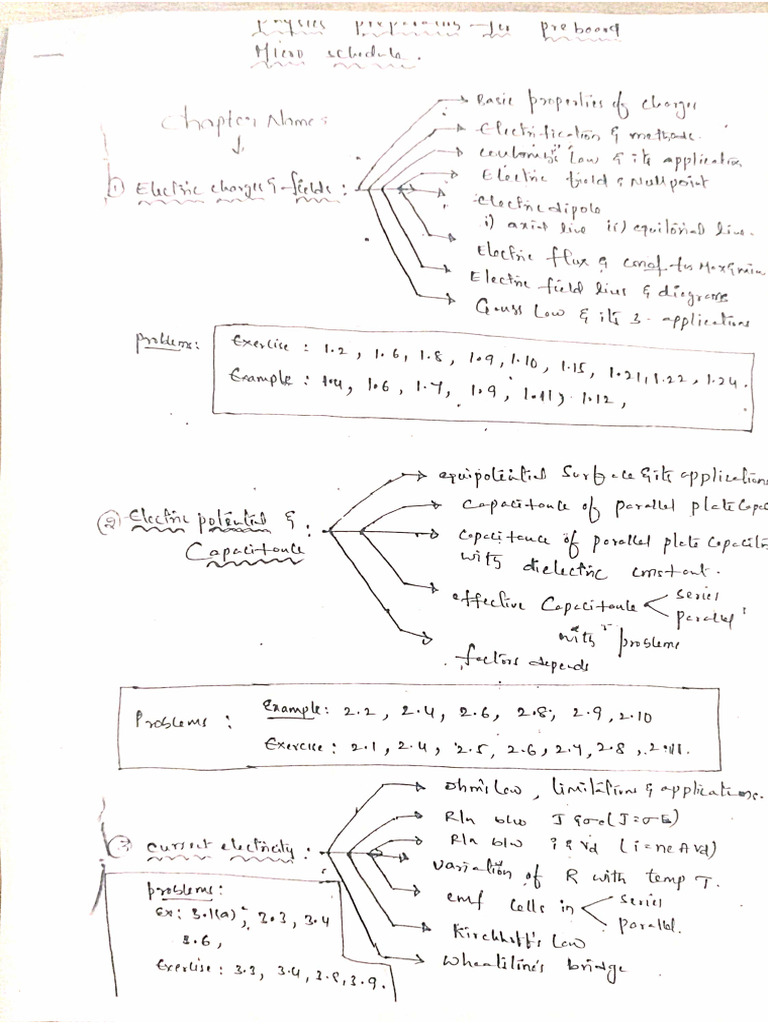 Physics preparations for preboard
Micro schedule.
Chapter Names
① Electric charges & fields :
Basic properties of charges
Electrification & methods.
coulomb's law & its application
Electric field & Null point
Electric dipole
i) axial line ii) equitorial line.
Electric flux &
Electric field lines & diagrams
Gauss Law & its 3 - applications
problems:
Exercise : 1.2, 1.6, 1.8, 1.9, 1.10, 1.15, 1.21, 1.22, 1.24.
Example : 1.4, 1.6, 1.7, 1.9, 1.11, 1.12,
② Electric potential &
Capacitance :
equipotential Surface & its applications
Capacitance of parallel plate Capac
Capacitance of parallel plate Capacito
with dielectric constant.
effective Capacitance
series
parallel
with problems
factors depends
Problems :
Example : 2.2, 2.4, 2.6, 2.8, 2.9, 2.10
Exercise : 2.1, 2.4, 2.5, 2.6, 2.7, 2.8, 2.11.
③ current electricity :
Ohm's law, limitations & applications.
Rln b/w J & σ (J=σE)
Rln b/w i & Vd (i=neAVd)
variation of R with temp T.
emf cells in
series
parallel.
Kirchhoff's Law
Wheatstine's bridge
problems:
Ex: 3.1(a), 3.3, 3.4
3.6,
Exercise : 3.3, 3.4, 3.8, 3.9.